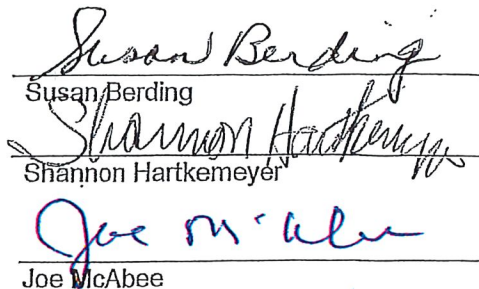 Susan Berding
Susan Berding
Shannon Hartkemeyer
Shannon Hartkemeyer
Joe McAbee
Joe McAbee